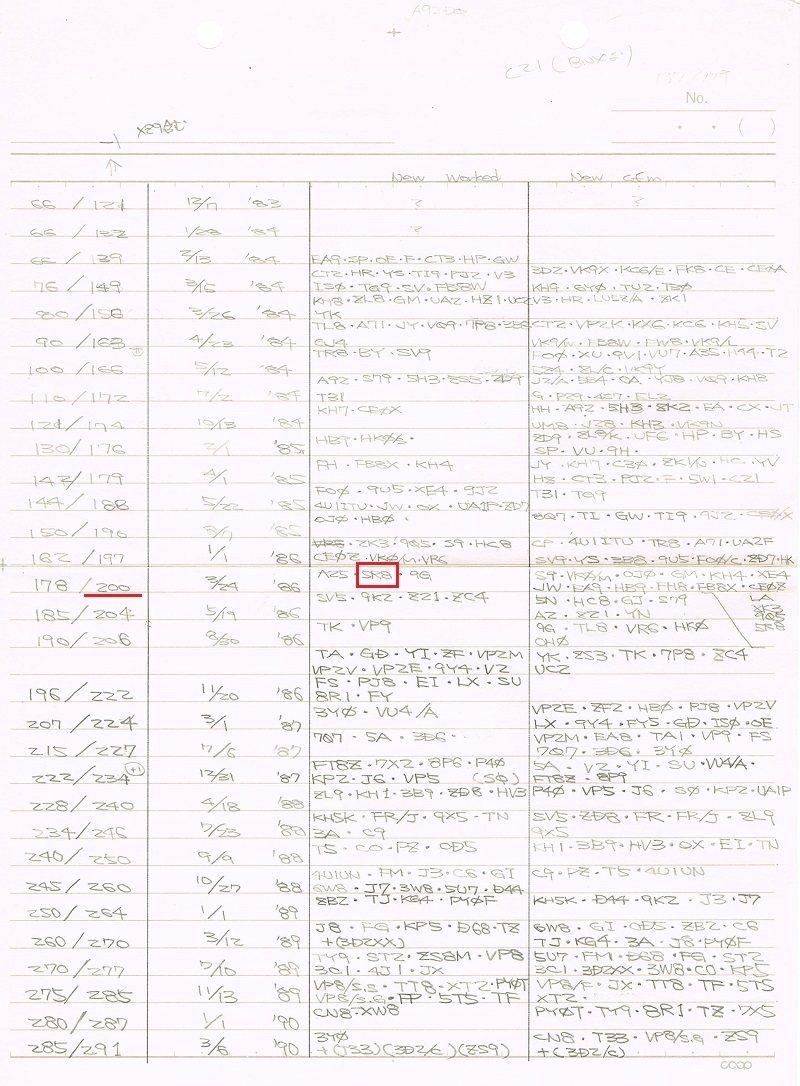 A92DØØ
C21 (BNXら)
No.
・ ・ ( )
X29含む
-1
New Worked New Cfm
66 / 121 12/7 '83 ? ?
66 / 132 1/28 '84 ?
66 / 139 2/13 '84 EA9・SP・OE・F・CT3・HP・GW
CT2・HR・YS・TI9・PJ2・V3 3D2・VK9X・KC6/E・FK8・CE・CEØA
76 / 149 3/15 '84 ISØ・TG9・SV・FB8W KH9・6YØ・TU2・T3Ø
KH8・ZL8・GM・UA2・HZ1・UC2 V3・HR・LU5Z/A・ZK1
80 / 156 3/26 '84 YK
TL8・A71・JY・VQ9・7P8・3B6 CT2・VP2K・KX6・KC6・KH5・SV
90 / 163 4/23 '84 GJ4 VK9/W・FB8W・FW8・VK9/L
TR8・BY・SV9 FOØ・XU・9V1・VU7・A35・H44・T2
100 / 166 5/12 '84 ZL/C・VK9Y
A92・S79・5H3・ZS3・ZD9 JZ/A・5B4・OA・YJ8・VQ9・KH8
110 / 172 7/2 '84 T31 G・PZ9・4S7・EL2
KH7・CEØX HH・A92・5H3・8K2・EA・CX・JT
121 / 174 10/13 '84 UM8・JZ8・KH3・VK9N
HB9・HKØ/S・ ZD9・ZL9K・UF6・HP・BY・HS
130 / 176 2/1 '85 SP・VU・9H・
FH・FB8X・KH4 JY・KH7・C3Ø・ZK1/N・HC・YV
142 / 179 4/1 '85 H3・CT3・PJ2・F・5W1・C21
FOØ・9U5・XE4・9J2 T31・TG9
144 / 188 5/22 '85 4U1ITU・JW・OX・UA1P・ZD7
OJØ・HBØ・ 8Q7・TI・GW・TI9・9J2・CEØ/X
150 / 190 8/7 '85
ZK3・9Q5・S9・HC8 CP・4U1ITU・TR8・A71・UA2F
162 / 197 1/1 '86 CEØZ・VKØ/M・VR6 SV9・YS・3B8・9U5・FOØ/C・ZD7・HK
A25・5R8・9G S9・VKØ/M・OJØ・GM・KH4・XE4
178 / 200 3/24 '86 JW・EA9・HB9・FH8・FB8X・CEØZ
SV5・9K2・Z21・ZC4 5N・HC8・GJ・S79 LA
185 / 204 5/19 '86 AZ・Z1・YN XK3
9Q5
TK・VP9 9G・TL8・VR6・HKØ 5R8
190 / 206 8/30 '86 OHØ
TA・GD・YI・ZF・VP2M YK・ZS3・TK・7P8・ZC4
VP2V・VP2E・9Y4・V2 UC2
FS・PJ8・EI・LX・SU
196 / 222 11/20 '86 8R1・FY
3YØ・VU4/A VP2E・ZF2・HBØ・PJ8・VP2V
207 / 224 3/1 '87 LX・9Y4・FY5・GD・ISØ・OE
7O7・5A・3D6・ VP2M・EA8・TA1・VP9・FS
215 / 227 7/6 '87 7O7・3D6・3YØ
FT8Z・7X2・8P6・P4Ø 5A・V2・YI・SU・VU4/A
222 / 234 (+1) 12/31 '87 KP2・J6・VP5 (SØ) FT8Z・8P9
ZL9・KH1・3B9・ZD8・HV3 P4Ø・VP5・J6・SØ・KP2・UA1P
228 / 240 4/18 '88
KH5K・FR/J・9X5・TN SV5・ZD8・FR・FR/J・ZL9
234 / 246 7/23 '88 3A・C9 9X5
T5・CO・PZ・OD5 KH1・3B9・HV3・OX・EI・TN
240 / 250 9/9 '88
4U1UN・FM・J3・C6・GI C9・PZ・T5・4U1UN
245 / 260 10/27 '88 6W8・J7・3W8・5U7・D44
ZB2・TJ・KG4・PYØF KH5K・D44・9K2・J3・J7
250 / 264 1/1 '89
J8・FG・KP5・D68・TZ 6W8・GI・OD5・ZB2・C6
260 / 270 3/12 '89 +(3D2XX) TJ・KG4・3A・J8・PYØF
TY9・ST2・ZS8M・VP8 5U7・FM・D68・FG・ST2
270 / 277 7/10 '89 3C1・4J1・JX 3C1・3D2XX・3W8・CO・KP5
VP8/S.S・TT8・XT2・PYØT VP8/F・JX・TT8・TF・5T5
275 / 285 11/13 '89 VP8/S.G・FP・5T5・TF XT2・
CN8・XW8 PYØT・TY9・8R1・TZ・7X5
280 / 287 1/1 '90
3YØ CN8・T33・VP8/S.G・ZS9
285 / 291 3/6 '90 +(T33)(3D2/C)(ZS9) +(3D2/C)
coop